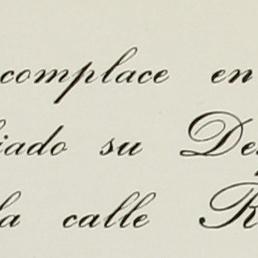 complace en
iado su De
la calle R